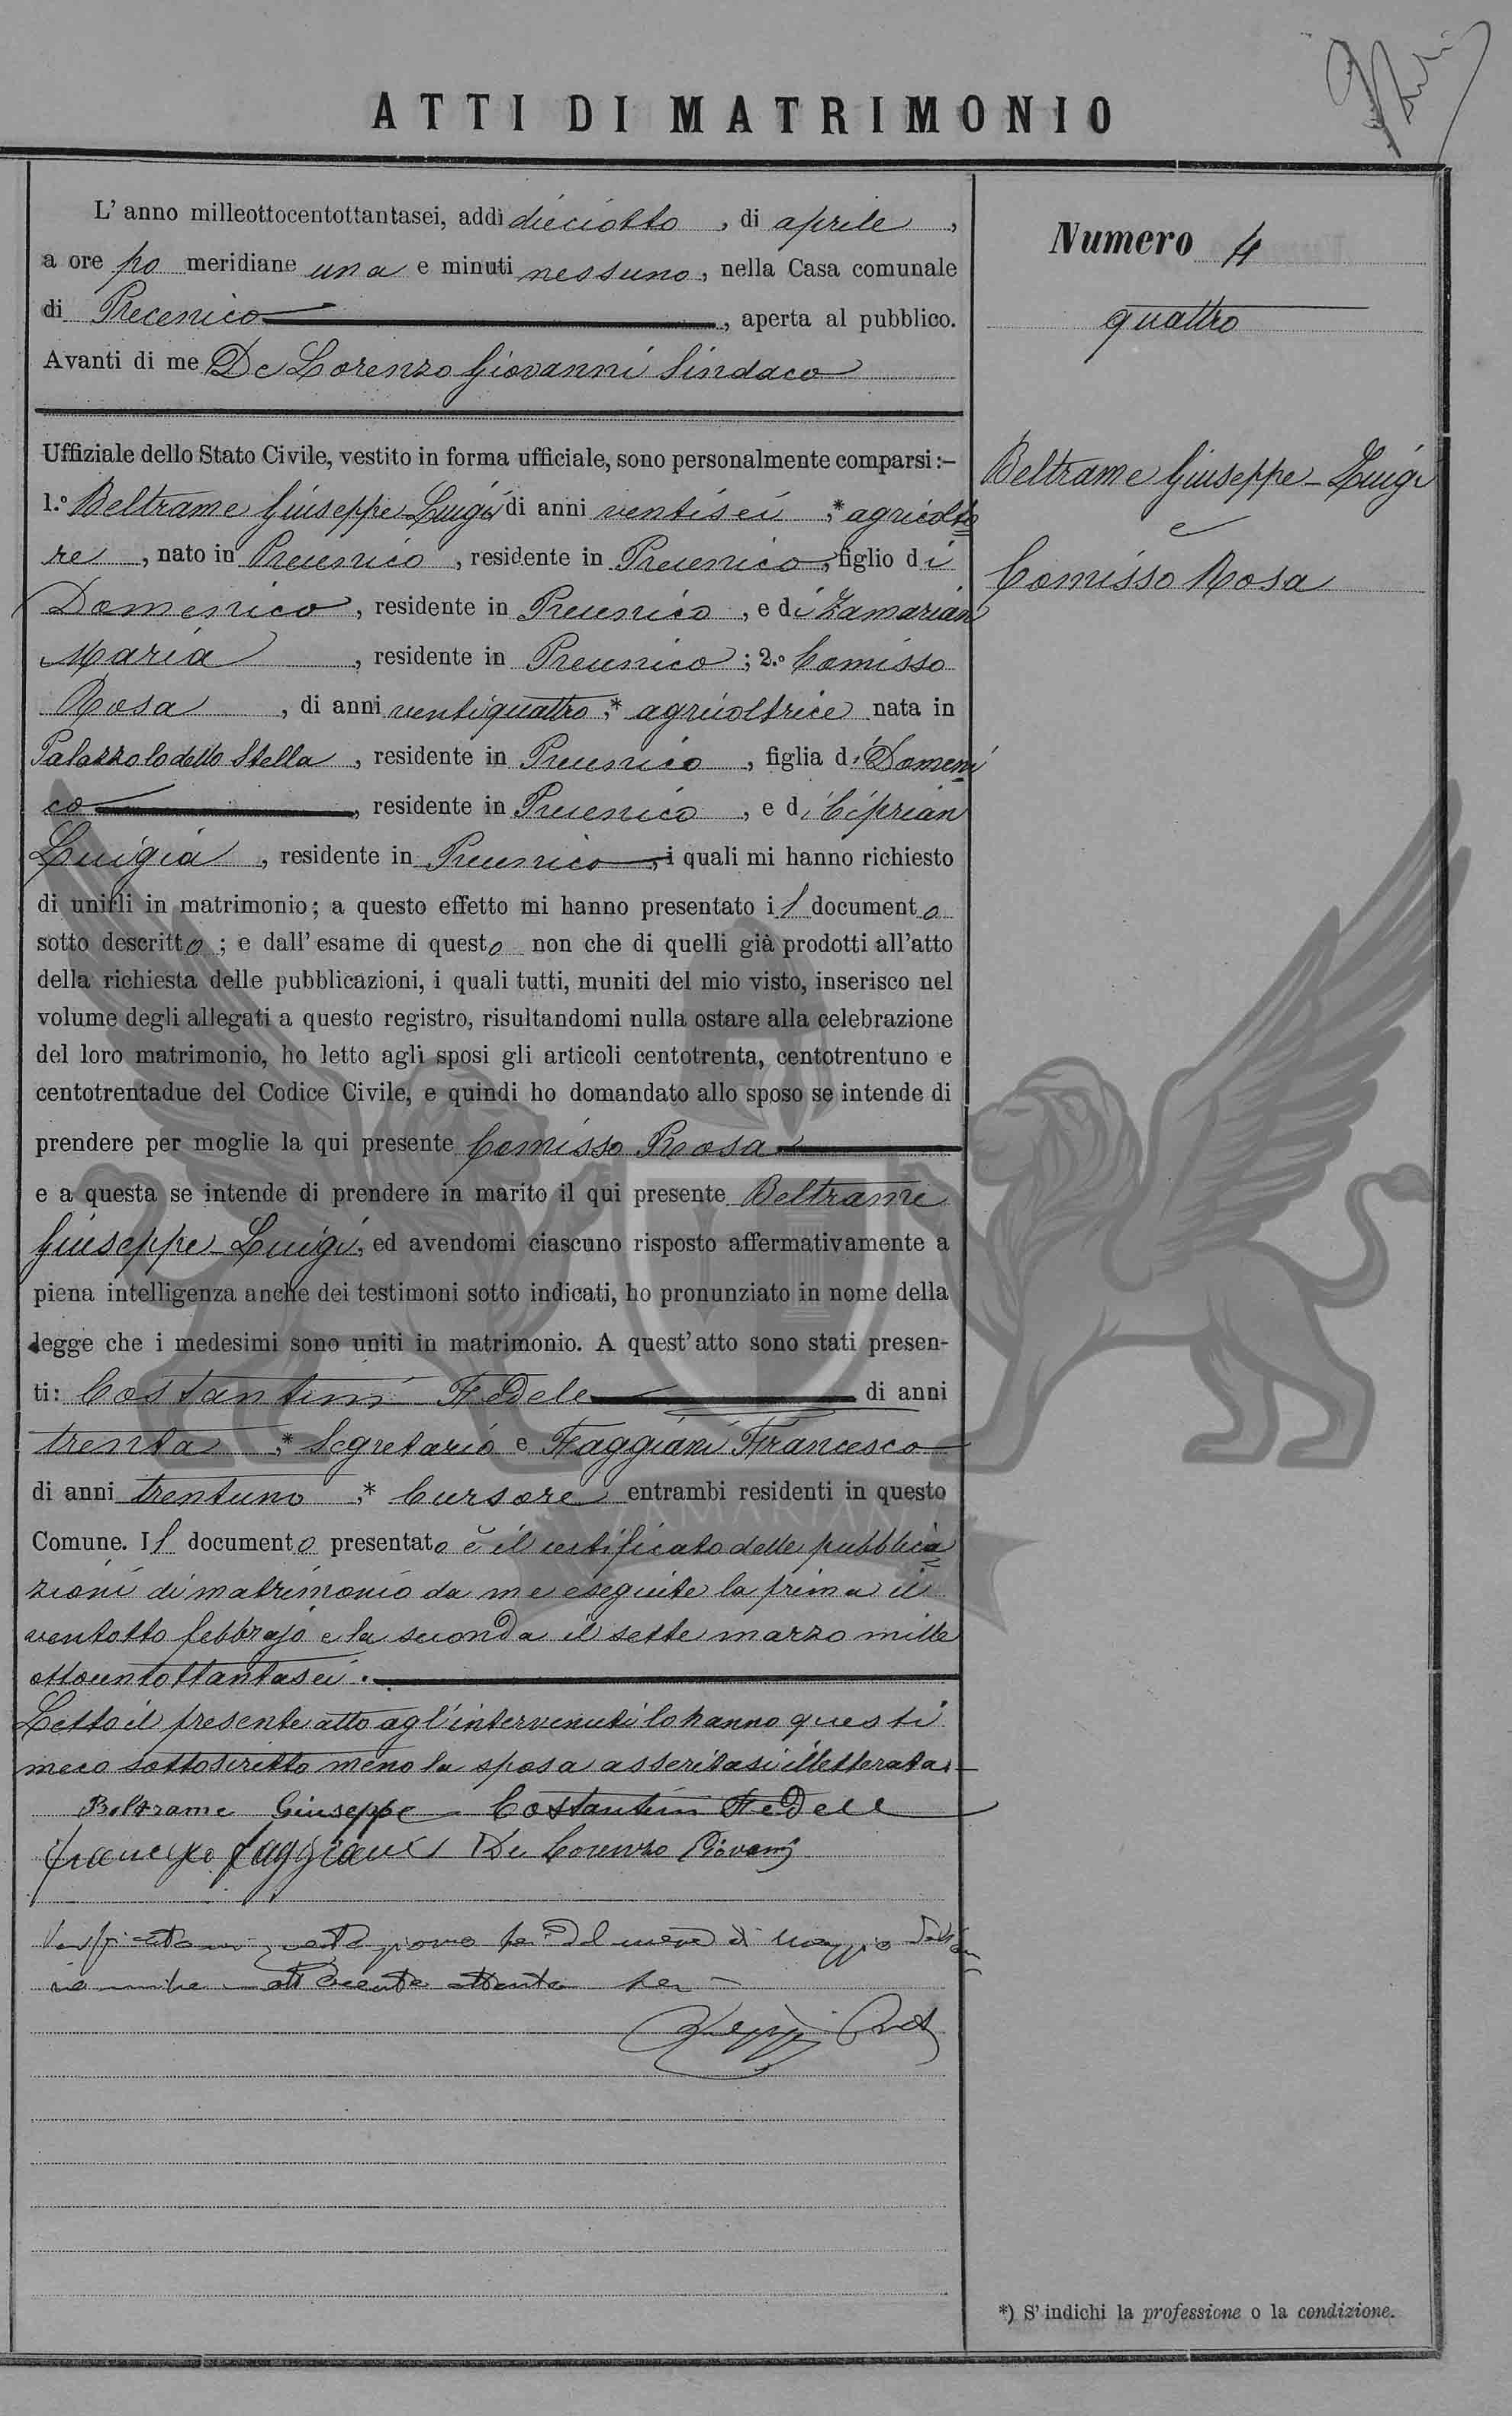 ATTI DI MATRIMONIO
L' anno milleottocentottantasei, addi dieciotto, di aprile,
a ore po meridiane una e minuti nessuno, nella Casa comunale
di Precenico, aperta al pubblico.
Avanti di me De Lorenzo Giovanni Sindaco
Uffiziale dello Stato Civile, vestito in forma ufficiale, sono personalmente comparsi :–
1.º Beltrame Giuseppe-Luigi di anni ventisei, * agricolto
re, nato in Precenico, residente in Precenico, figlio di
Domenico, residente in Precenico, e di Zamarian
Maria, residente in Precenico; 2.º Comisso
Rosa, di anni ventiquattro, * agricoltrice nata in
Palazzolo dello Stella, residente in Precenico, figlia di Domeni
co, residente in Precenico, e di Ciprian
Luigia, residente in Precenico, i quali mi hanno richiesto
di unirli in matrimonio; a questo effetto mi hanno presentato il documento
sotto descritto; e dall' esame di questo non che di quelli già prodotti all'atto
della richiesta delle pubblicazioni, i quali tutti, muniti del mio visto, inserisco nel
volume degli allegati a questo registro, risultandomi nulla ostare alla celebrazione
del loro matrimonio, ho letto agli sposi gli articoli centotrenta, centotrentuno e
centotrentadue del Codice Civile, e quindi ho domandato allo sposo se intende di
prendere per moglie la qui presente Comisso Rosa
e a questa se intende di prendere in marito il qui presente Beltrame
Giuseppe-Luigi, ed avendomi ciascuno risposto affermativamente a
piena intelligenza anche dei testimoni sotto indicati, ho pronunziato in nome della
legge che i medesimi sono uniti in matrimonio. A quest' atto sono stati presen-
ti: Costantini Fedele di anni
trenta, * Segretario e Faggiani Francesco
di anni trentuno, * Cursore entrambi residenti in questo
Comune. Il documento presentato è il certificato delle pubblica
zioni di matrimonio da me eseguite la prima il
ventotto febbrajo e la seconda il sette marzo mille
ottocentottantasei.
Letto il presente atto agl'intervenuti lo hanno questi
meco sottoscritto meno la sposa asseritasi illetterata.
Beltrame Giuseppe - Costantini Fedele
Francesco Faggiani De Lorenzo Giovanni
questo giorno del mese di Maggio
otto cento ottanta sei
Numero 4
quattro
Beltrame Giuseppe-Luigi
e
Comisso Rosa
*) S' indichi la professione o la condizione.